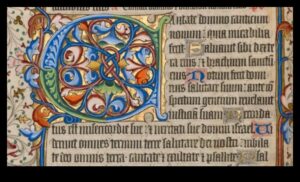 Cantate domino canticum
nouum quia mirabilia
fecit Saluauit sibi dexte
ra eius et brachium sanctum
eius Notum fecit domi
nus salutare suum ante con
spectum gentium reuelauit
iusticiam suam Recorda
tus est misericordie sue et ueritati sue domui israel Vi
derunt omnes termini terre salutare dei nostri Iubila
te deo omnis terra cantate et exultate et psallite Psal